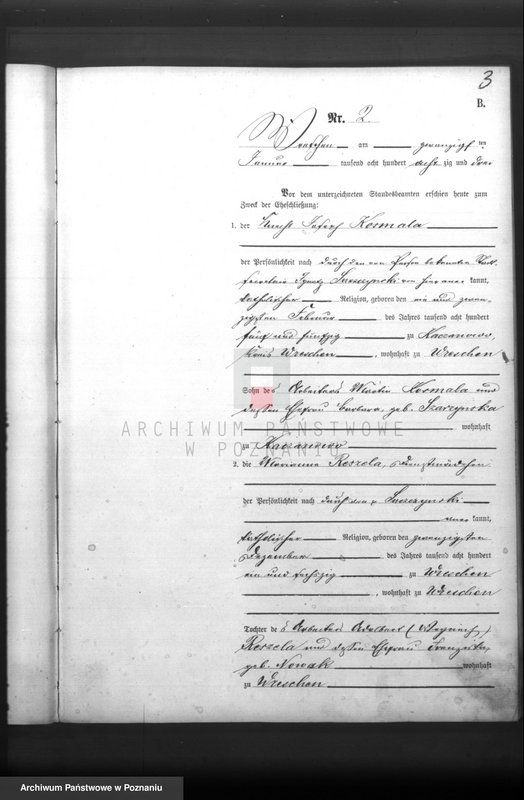 3
B.
Nr. 2.
Wreschen am zwanzigsten
Januar tausend acht hundert achtzig und drei
Vor dem unterzeichneten Standesbeamten erschien heute zum
Zweck der Eheschließung:
1. der Knecht Joseph Kosmala
der Persönlichkeit nach durch den von Person bekannten
Ignatz Suszczynski von hier aner kannt,
katholischer Religion, geboren den ein und zwan-
zigsten Februar des Jahres tausend acht hundert
fünf und fünfzig zu Kaczanowo,
Kreis Wreschen, wohnhaft zu Wreschen
Sohn des Arbeiters Martin Kosmala und
dessen Ehefrau Barbara geb. Szarzynska
wohnhaft
zu Kaczanowo
2. die Marianna Roszela, Dienstmädchen
der Persönlichkeit nach durch den p Suszczynski
aner kannt,
katholischer Religion, geboren den zwanzigsten
Dezember des Jahres tausend acht hundert
ein und sechszig zu Wreschen
, wohnhaft zu Wreschen
Tochter des Arbeiters Adalbert (Woyciech)
Roszela und dessen Ehefrau Franziska,
geb. Nowak wohnhaft
zu Wreschen
ARCHIWUM PAŃSTWOWE
W POZNANIU
Archiwum Państwowe w Poznaniu